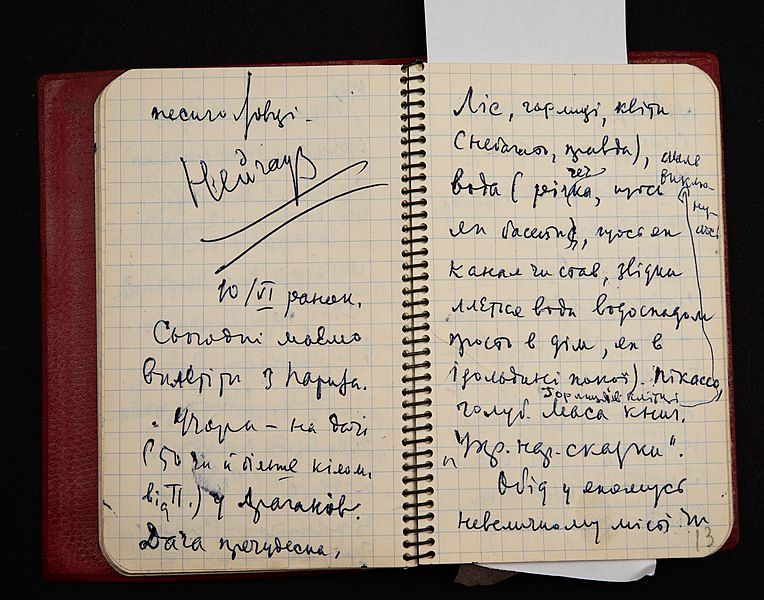 песиголовці.
Нейгауз
10/VI ранок.
Сьогодні маємо
вилетіти з Парижа.
Учора – на дачі
(50 чи й більше кілом.
від П.) у Драганів.
Дача пречудесна,
Ліс, горлиці, квіти
(небагато, правда),
вода (річка, щось
як басейн), щось як
канал чи став, звідки
ллється вода водоспадом
просто в дім, як в
ізольдині покої). Пікассо,
Горлиці в клітці
голуб. Маса книг.
„Укр. нар. казки".
Обід у якомусь
невеличкому місті чи
13